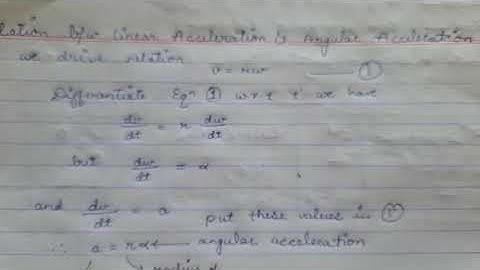 lation b/w linear Acceleration & Angular Acceleration
we drive relation
v = rw ——— ①
Diffrantiate Eqⁿ ① w.r.t 't' we have
dv/dt = r dw/dt
but dw/dt = α
and dv/dt = a put these values in ②
∴ a = rα angular acceleration
radius of